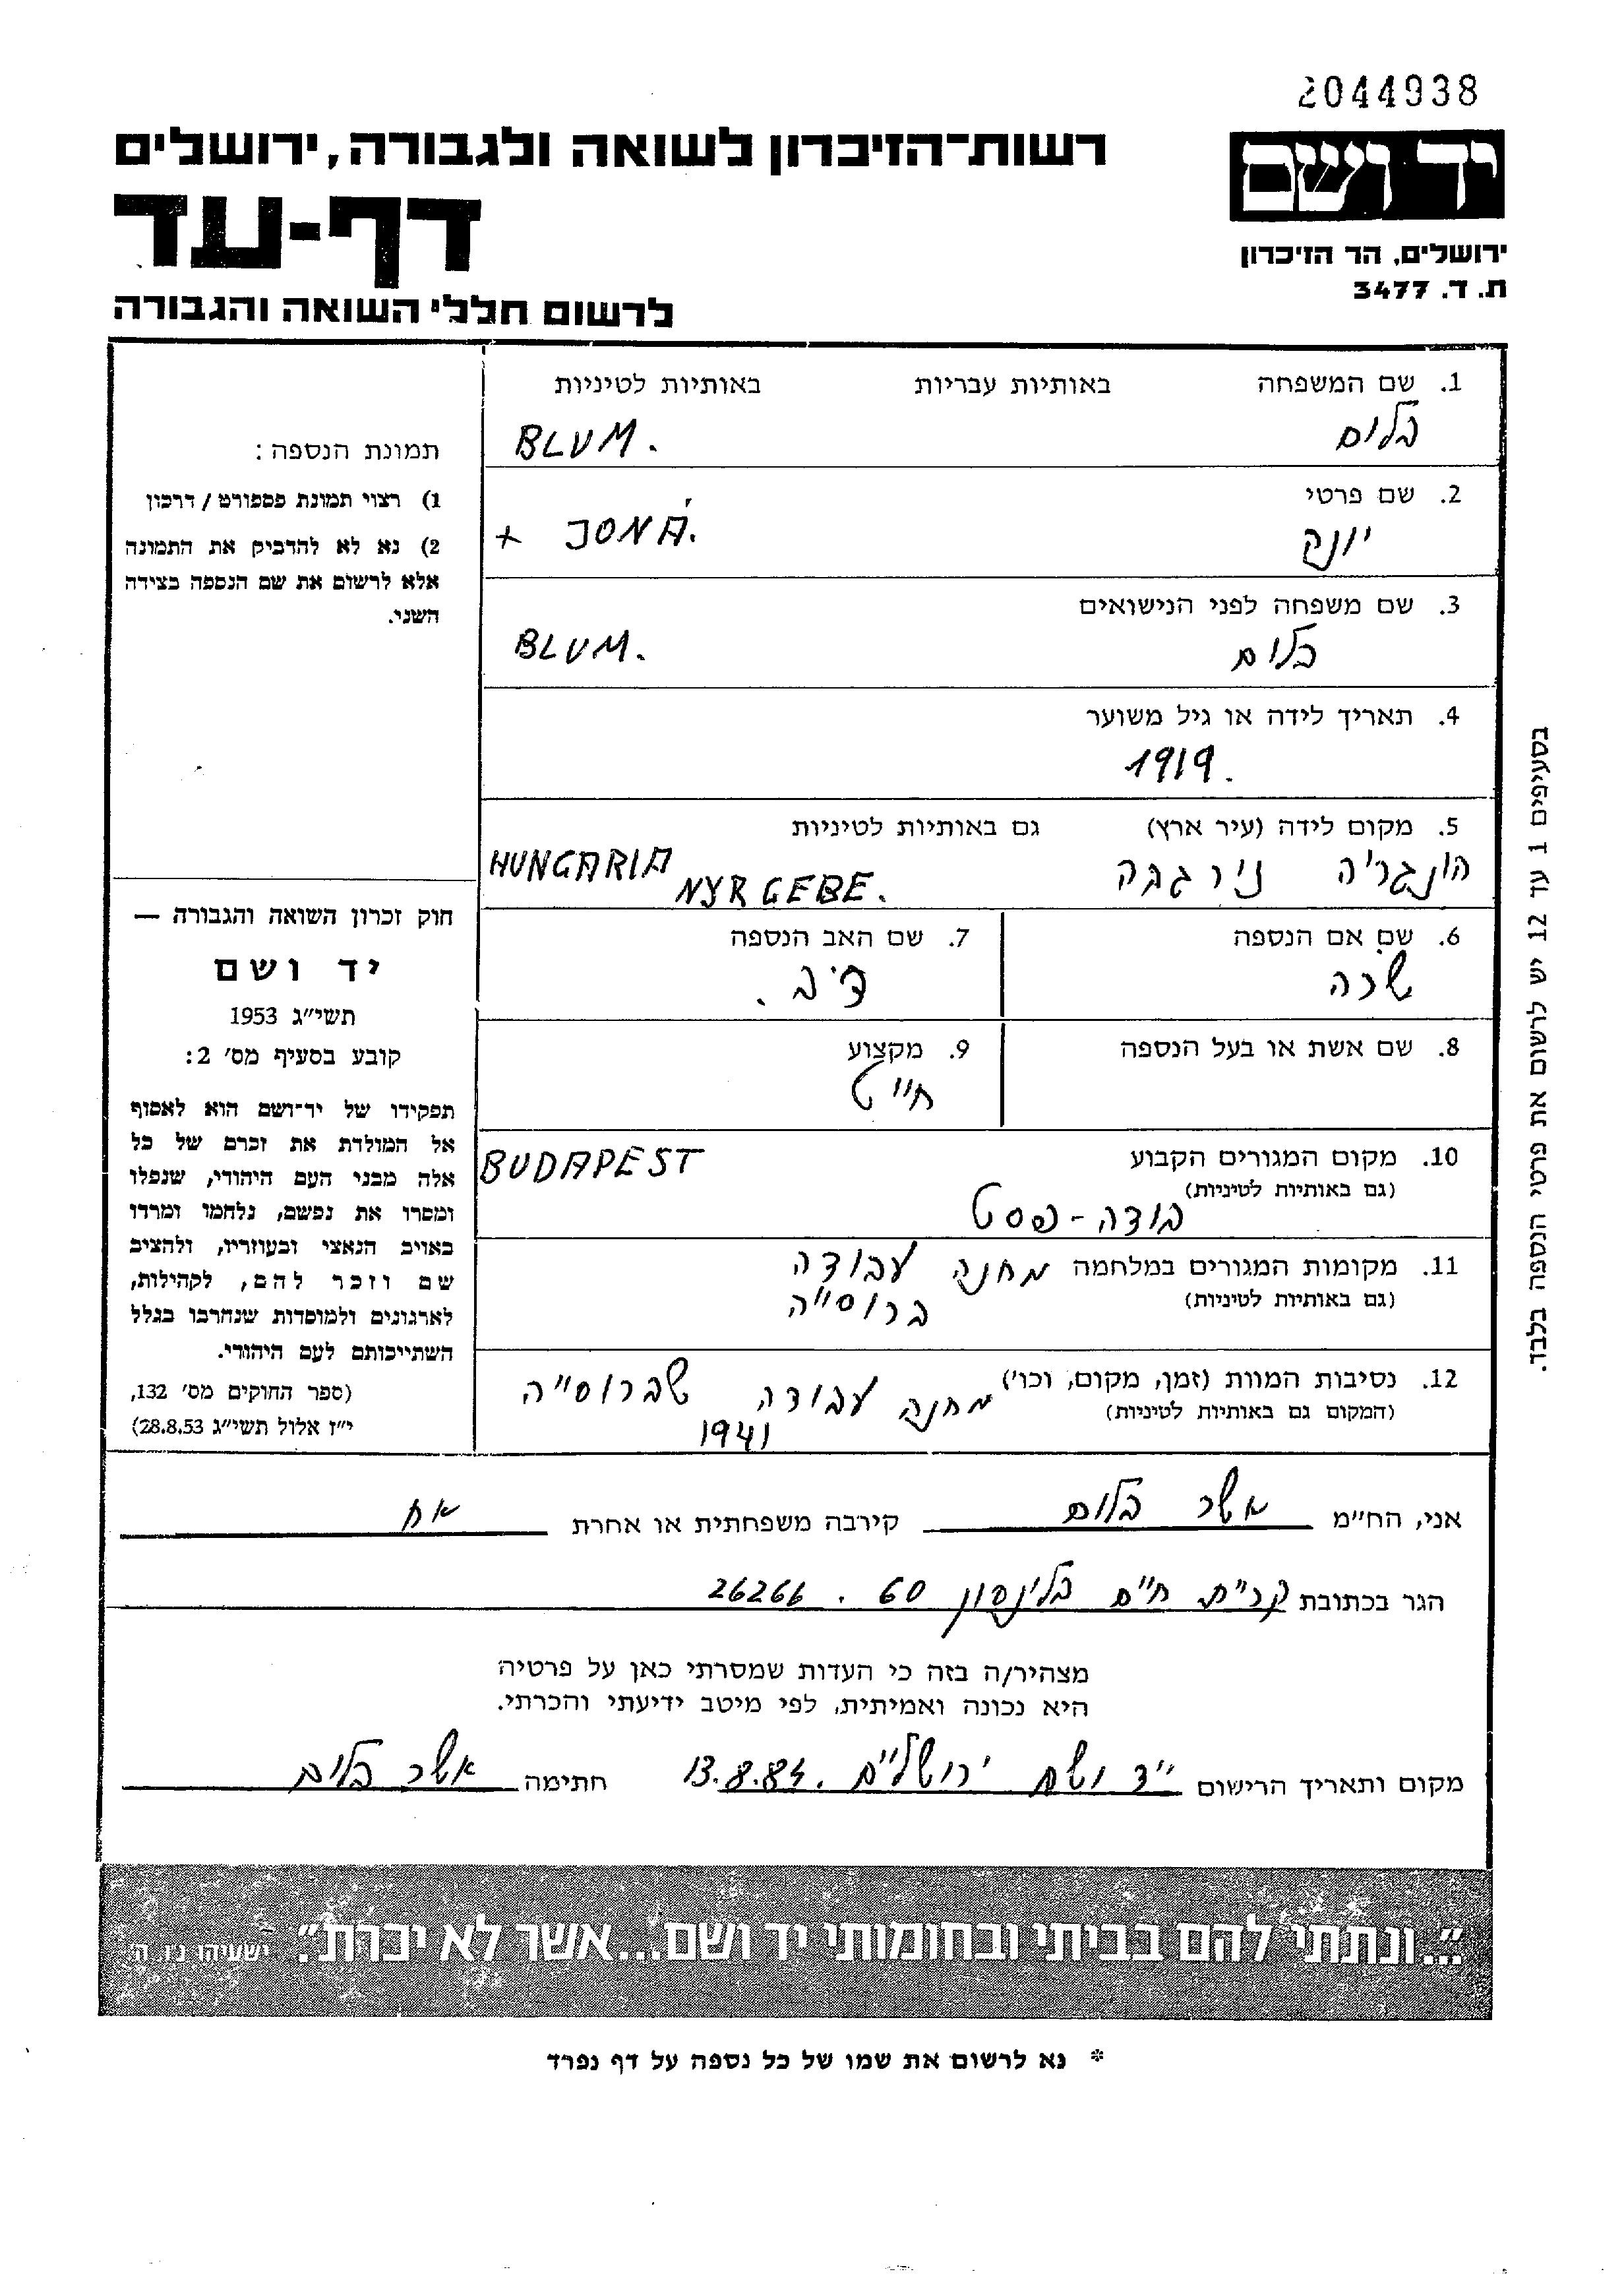 2044938
יד ושם
רשות־הזיכרון לשואה ולגבורה, ירושלים
דף-עד
לרשום חללי השואה והגבורה
ירושלים, הר הזיכרון
ת. ד. 3477
1. שם המשפחה באותיות עבריות באותיות לטיניות
בלום BLUM.
2. שם פרטי
יונה + JONÁ.
3. שם משפחה לפני הנישואים
בלום BLUM.
4. תאריך לידה או גיל משוער
1919.
5. מקום לידה (עיר ארץ) גם באותיות לטיניות
הונגריה נירגבה HUNGARIA
NYRGEBE.
6. שם אם הנספה
שרה
7. שם האב הנספה
8. שם אשת או בעל הנספה
9. מקצוע
חייט
10. מקום המגורים הקבוע BUDAPEST
(גם באותיות לטיניות)
בודה-פסט
11. מקומות המגורים במלחמה מחנה עבודה
(גם באותיות לטיניות) ברוס"יה
12. נסיבות המוות (זמן, מקום, וכו') מחנה עבודה שברוס"יה
(המקום גם באותיות לטיניות)
1941
תמונת הנספה:
1) רצוי תמונת פספורט / דרכון
2) נא לא להדביק את התמונה
אלא לרשום את שם הנספה בצידה
השני.
חוק זכרון השואה והגבורה —
יד ושם
תשי"ג 1953
קובע בסעיף מס' 2:
תפקידו של יד־ושם הוא לאסוף
אל המולדת את זכרם של כל
אלה מבני העם היהודי, שנפלו
ומסרו את נפשם, נלחמו ומרדו
באויב הנאצי ובעוזריו, ולהציב
שם וזכר להם, לקהילות,
לארגונים ולמוסדות שנחרבו בגלל
השתייכותם לעם היהודי.
(ספר החוקים מס' 132,
י"ז אלול תשי"ג 28.8.53)
בסעיפים 1 עד 12 יש לרשום את פרטי הנספה בלבד.
אני, הח"מ אשר בלום קירבה משפחתית או אחרת אח
הגר בכתובת קרית חיים בלינסון 60. 26266
מצהיר/ה בזה כי העדות שמסרתי כאן על פרטיה
היא נכונה ואמיתית, לפי מיטב ידיעתי והכרתי.
מקום ותאריך הרישום יד ושם ירושלים. 13.8.84 חתימה אשר בלום
"...ונתתי להם בביתי ובחומותי יד ושם...אשר לא יכרת". ישעיהו נ"ו, ה'
* נא לרשום את שמו של כל נספה על דף נפרד